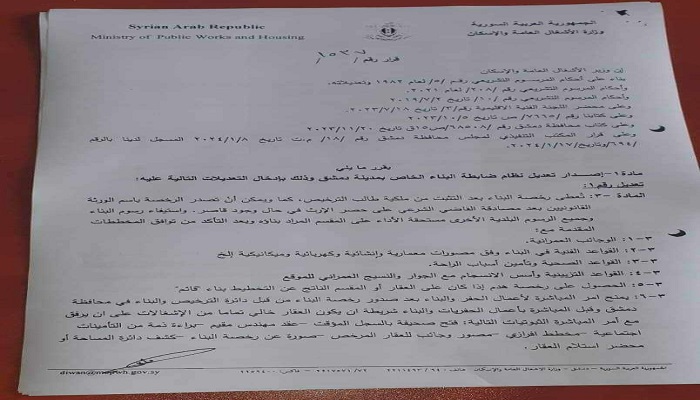 Syrian Arab Republic
Ministry of Public Works and Housing
الجمهورية العربية السورية
وزارة الأشغال العامة والإسكان
قرار رقم / /
إن وزير الأشغال العامة والإسكان
بناء على أحكام المرسوم التشريعي رقم /٥/ لعام ١٩٨٢ وتعديلاته.
وأحكام المرسوم التشريعي رقم /٢٠٨/ لعام ٢٠٢١.
وأحكام المرسوم التشريعي رقم /١٠/ تاريخ ٢٠١٩/٧/٢
وعلى محضر اللجنة الفنية الاقليمية رقم/٣/ تاريخ ٢٠٢٣/٧/١٨
وعلى كتابنا رقم /٧٦٦٥/ص تاريخ ٢٠٢٣/١٠/٥
وعلى كتاب محافظة دمشق رقم تاريخ ٢٠٢٣/١١/٢٠
وعلى قرار المكتب التنفيذي لمجلس محافظة دمشق رقم /١٨/ م.ت تاريخ ٢٠٢٤/١/٨ المسجل لدينا بالرقم
/٦٩٤/وتاريخ ٢٠٢٤/١/١٧.
يقرر ما يلي
مادة ١-إصدار تعديل نظام ضابطة البناء الخاص بمدينة دمشق وذلك بإدخال التعديلات التالية عليه:
تعديل رقم ١:
المادة -٣: تُعطي رخصة البناء بعد التثبت من ملكية طالب الترخيص، كما ويمكن أنْ تصدر الرخصة باسم الورثة
القانونيين بعد مصادقة القاضي الشرعي على حصر الإرث في حال وجود قاصر. واستيفاء رسوم البناء
وجميع الرسوم البلدية الأخرى مستحقة الأداء على المقسم المراد بناؤه وبعد التأكد من توافق المخططات
المقدمة مع:
٣-١: الوجائب العمرانية.
٣-٢: القواعد الفنية في البناء وفق مصورات معمارية وإنشائية وكهربائية وميكانيكية إلخ
٣-٣: القواعد الصحية وتأمين أسباب الراحة.
٣-٤: القواعد التزيينية وأسس الانسجام مع الجوار والنسيج العمراني للموقع
٣-٥: الحصول على رخصة هدم إذا كان على العقار أو المقسم الناتج عن التخطيط بناء "قائم"
٣-٦: يمنح امر المباشرة لأعمال الحفر والبناء بعد صدور رخصة البناء من قبل دائرة الترخيص والبناء في محافظة
دمشق وقبل المباشرة بأعمال الحفريات والبناء شريطة ان يكون العقار خالي تماما من الإشغالات على ان يرفق
مع أمر المباشرة الثبوتيات التالية: فتح صحيفة بالسجل المؤقت -عقد مهندس مقيم -براءة ذمة من التأمينات
اجتماعية -مخطط افرازي -مصور وجائب للعقار المرخص -صورة عن رخصة البناء -كشف دائرة المساحة أو
محضر استلام العقار.
الجمهورية العربية السورية - دمشق - وزارة الأشغال العامة والإسكان
diwan@mopwh.gov.sy